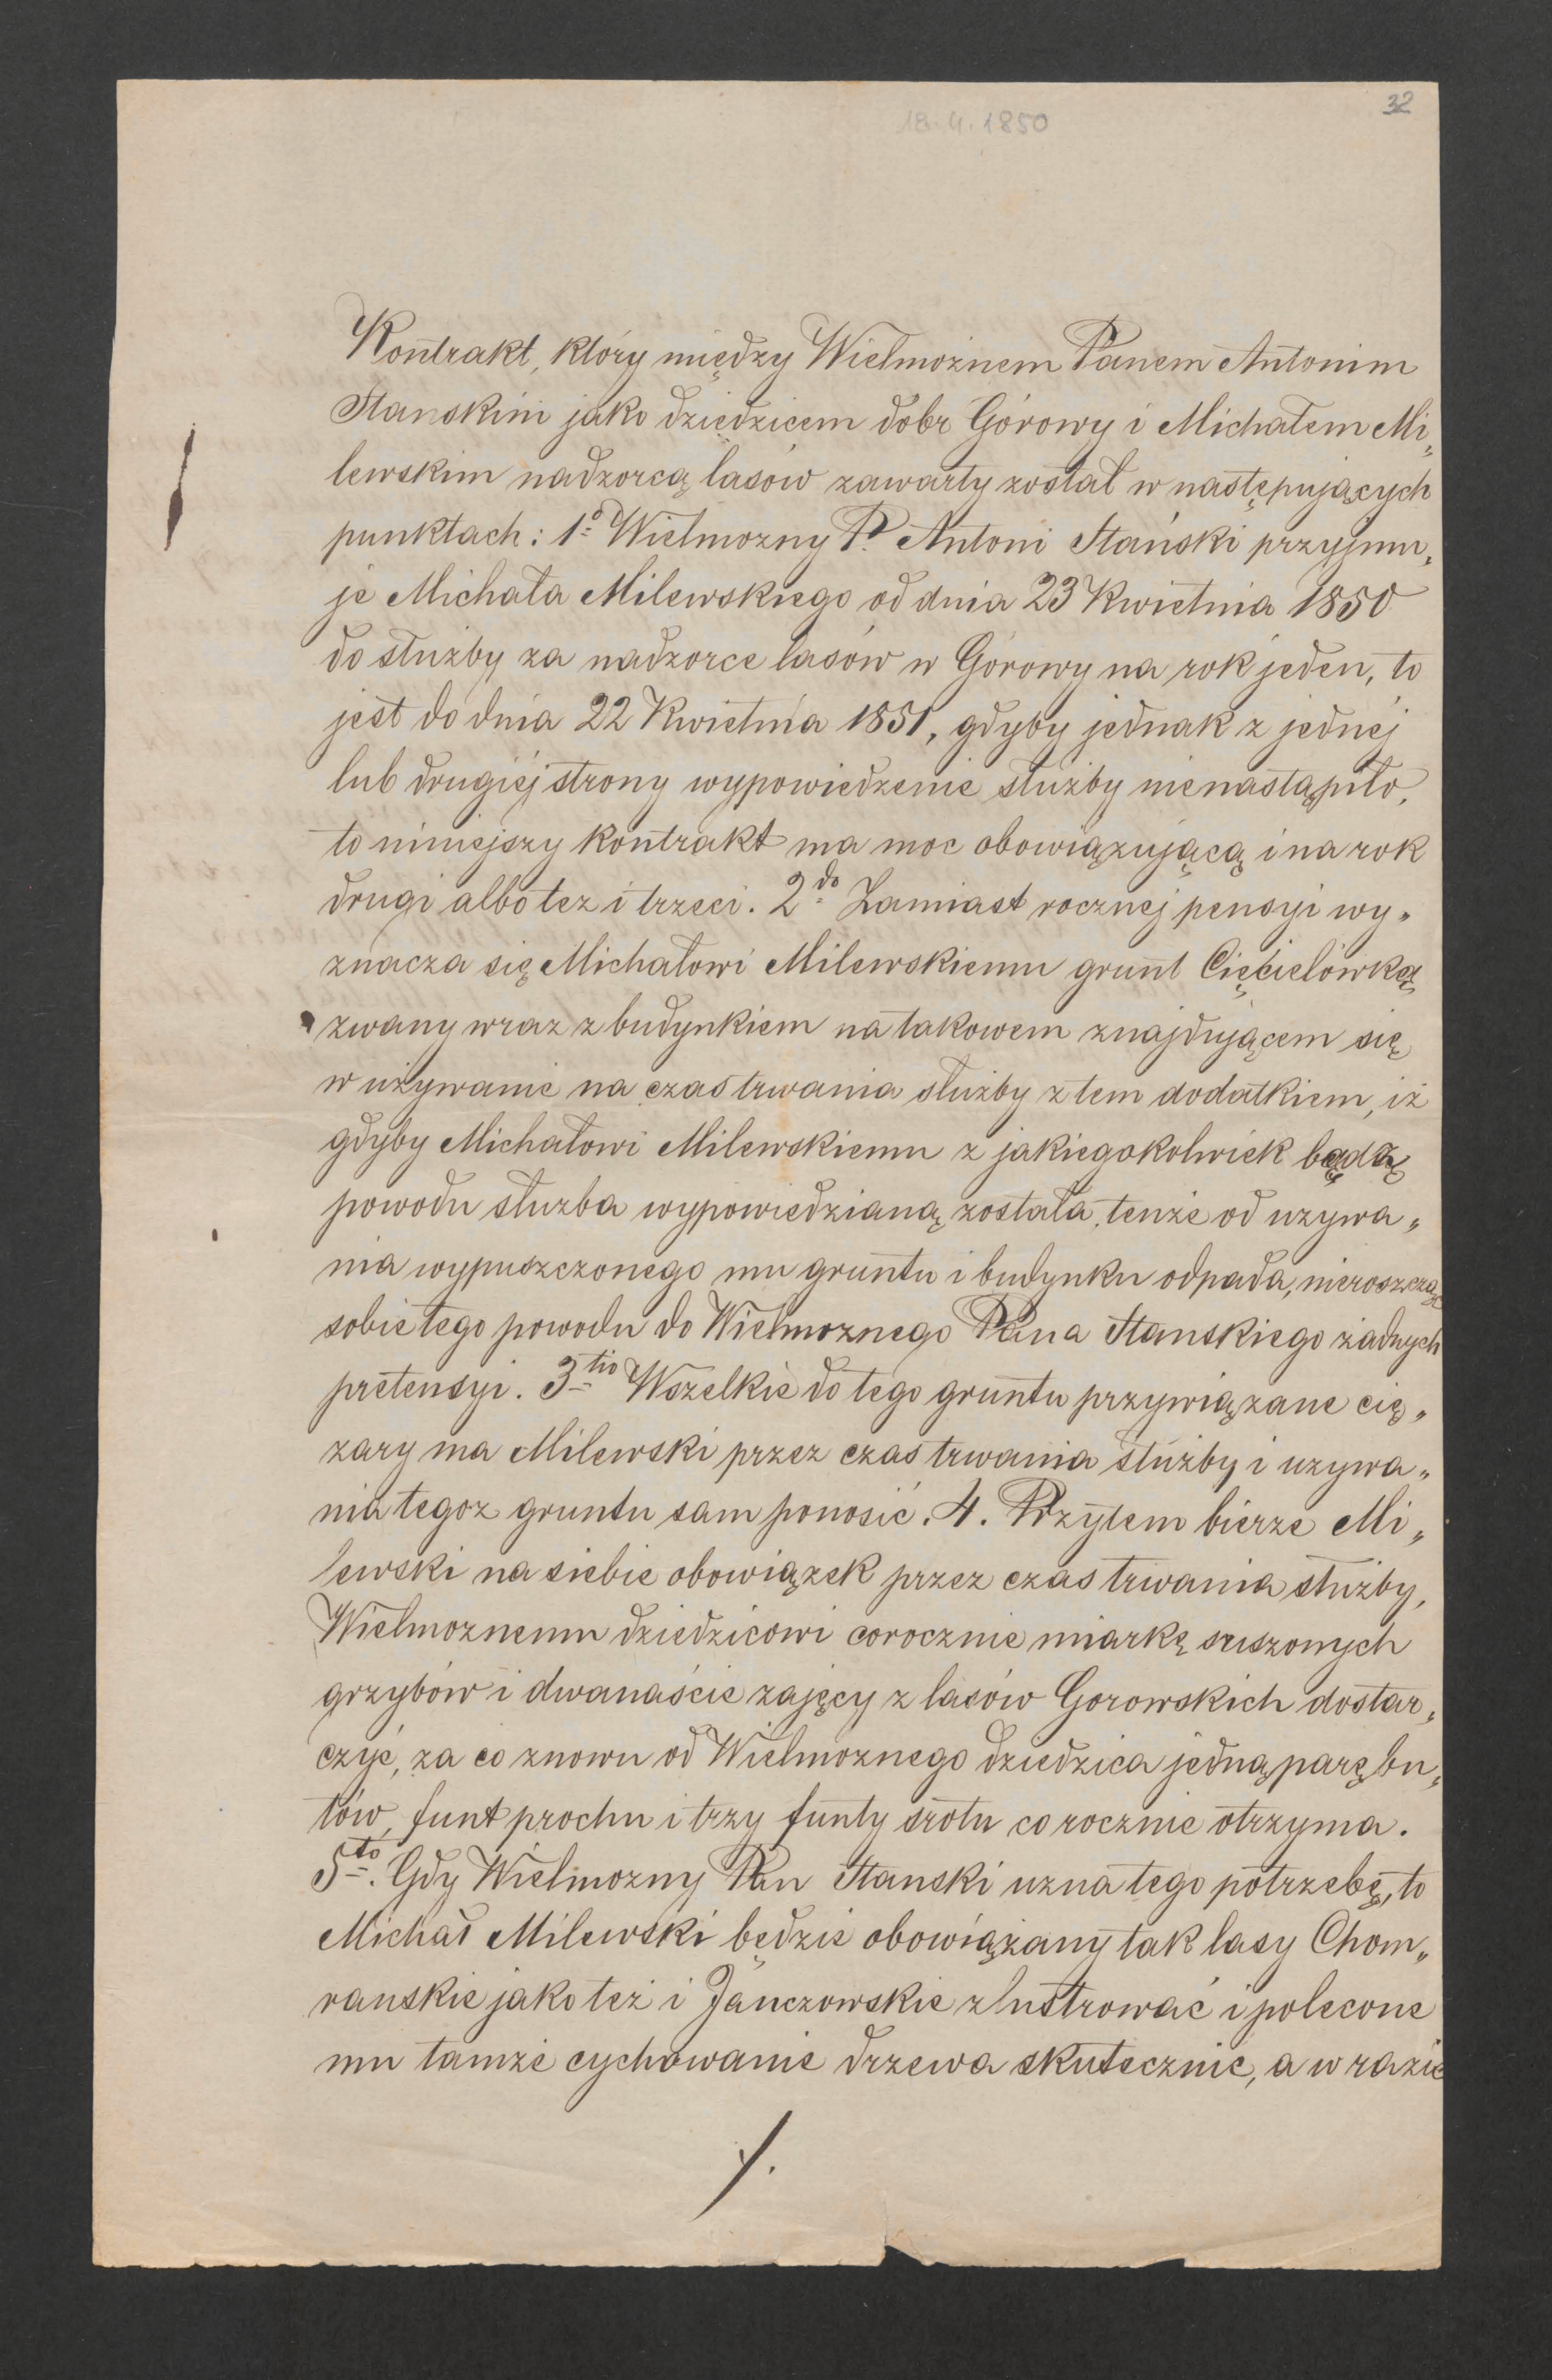 32
18.4.1850
Kontrakt, który między Wielmożnem Panem Antonim
Stanskim jako dziedzicem dóbr Górowy i Michałem Mi„
lewskim nadzorcą lasów zawarty został w następujących
punktach: 1o Wielmozny P. Antoni Stański przyjmu„
je Michała Milewskiego od dnia 23 Kwietnia 1850
do służby za nadzorce lasów w Górowy na rok jeden, to
jest do dnia 22 Kwietnia 1851, gdyby jednak z jednéj
lub drugiéj strony wypowiedzenie służby nienastąpiło,
to niniejszy Kontrakt ma moc obowiązującą i na rok
drugi albo tez i trzeci. 2do Zamiast rocznej pensyi wy„
znacza się Michałowi Milewskiemu grunt Cięcielówką
zwany wraz z budynkiem na takowem znajdującem się
w używanie na czas trwania służby z tem dodatkiem, iż
gdyby Michałowi Milewskiemu z jakiegokolwiek bądź
powodu służba wypowiedzianą została, tenże od uzywa„
nia wypuszczonego mu gruntu i budynku odpada, nieroszcząc
sobie tego powodu do Wielmoznego Pana Stanskiego żadnych
pretensyi. 3tio Wszelkie do tego gruntu przywiązane cię„
zary ma Milewski przez czas trwania służby i uzywa„
nia tegoz gruntu sam ponosić. 4. Przytem bierze Mi„
lewski na siebie obowiązek przez czas trwania służby,
Wielmoznemu dziedzicowi corocznie miarkę suszonych
grzybów i dwanaście zajęcy z lasów Gorowskich dostar„
czyć, za co znowu od Wielmoznego dziedzica jedną parę bu„
tów, funt prochu i trzy funty śrotu corocznie otrzyma.
5to. Gdy Wielmozny Pan Stanski uzna tego potrzebę, to
Michał Milewski będzie obowiązany tak lasy Chom„
ranskie jako też i Janczowskie zlustrować i polecone
mu tamże cychowanie drzewa skutecznie, a w razie
./.